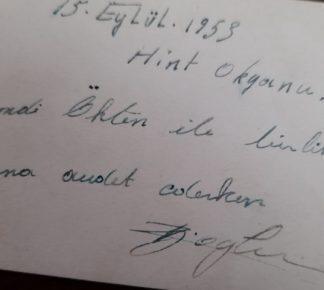 15. Eylül. 1953
Hint Okyanu
ndi Ökten ile birli
na avdet ederken